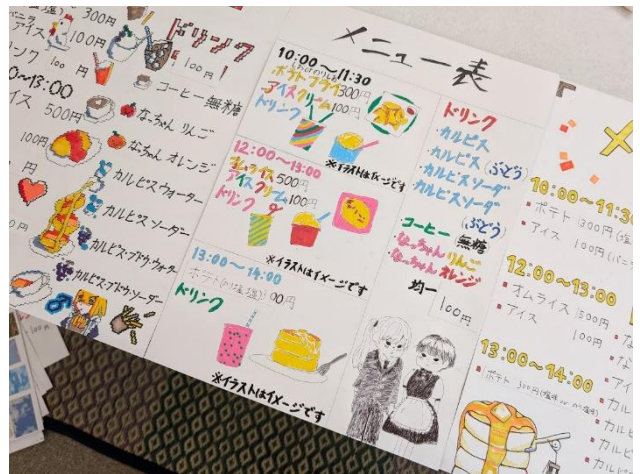 300円
アイス 100円
リンク 100円
アイス 500円
100円
円
ドリンク
100円!
・コーヒー無糖
・なっちゃん りんご
・なっちゃん オレンジ
・カルピスウォーター
・カルピスソーダー
・カルピスブドウウォーター
・カルピスブドウソーダー
メニュー表
10:00〜11:30
ポテトフライ300円
アイスクリーム100円
ドリンク
※イラストはイメージです
12:00〜13:00
オムライス500円
アイスクリーム100円
ドリンク
※イラストはイメージです
13:00〜14:00
ドリンク
※イラストはイメージです
ドリンク
・カルピス
・カルピス(ぶどう)
・カルピスソーダ
・カルピスソーダ
(ぶどう)
・コーヒー無糖
・なっちゃんりんご
・なっちゃんオレンジ
均一
100円
メ
10:00〜11:3
・ポテト 300円
・アイス 100円
12:00〜13:00
・オムライス 500円
・アイス 100円
13:00〜14:00
・ポテト 300円